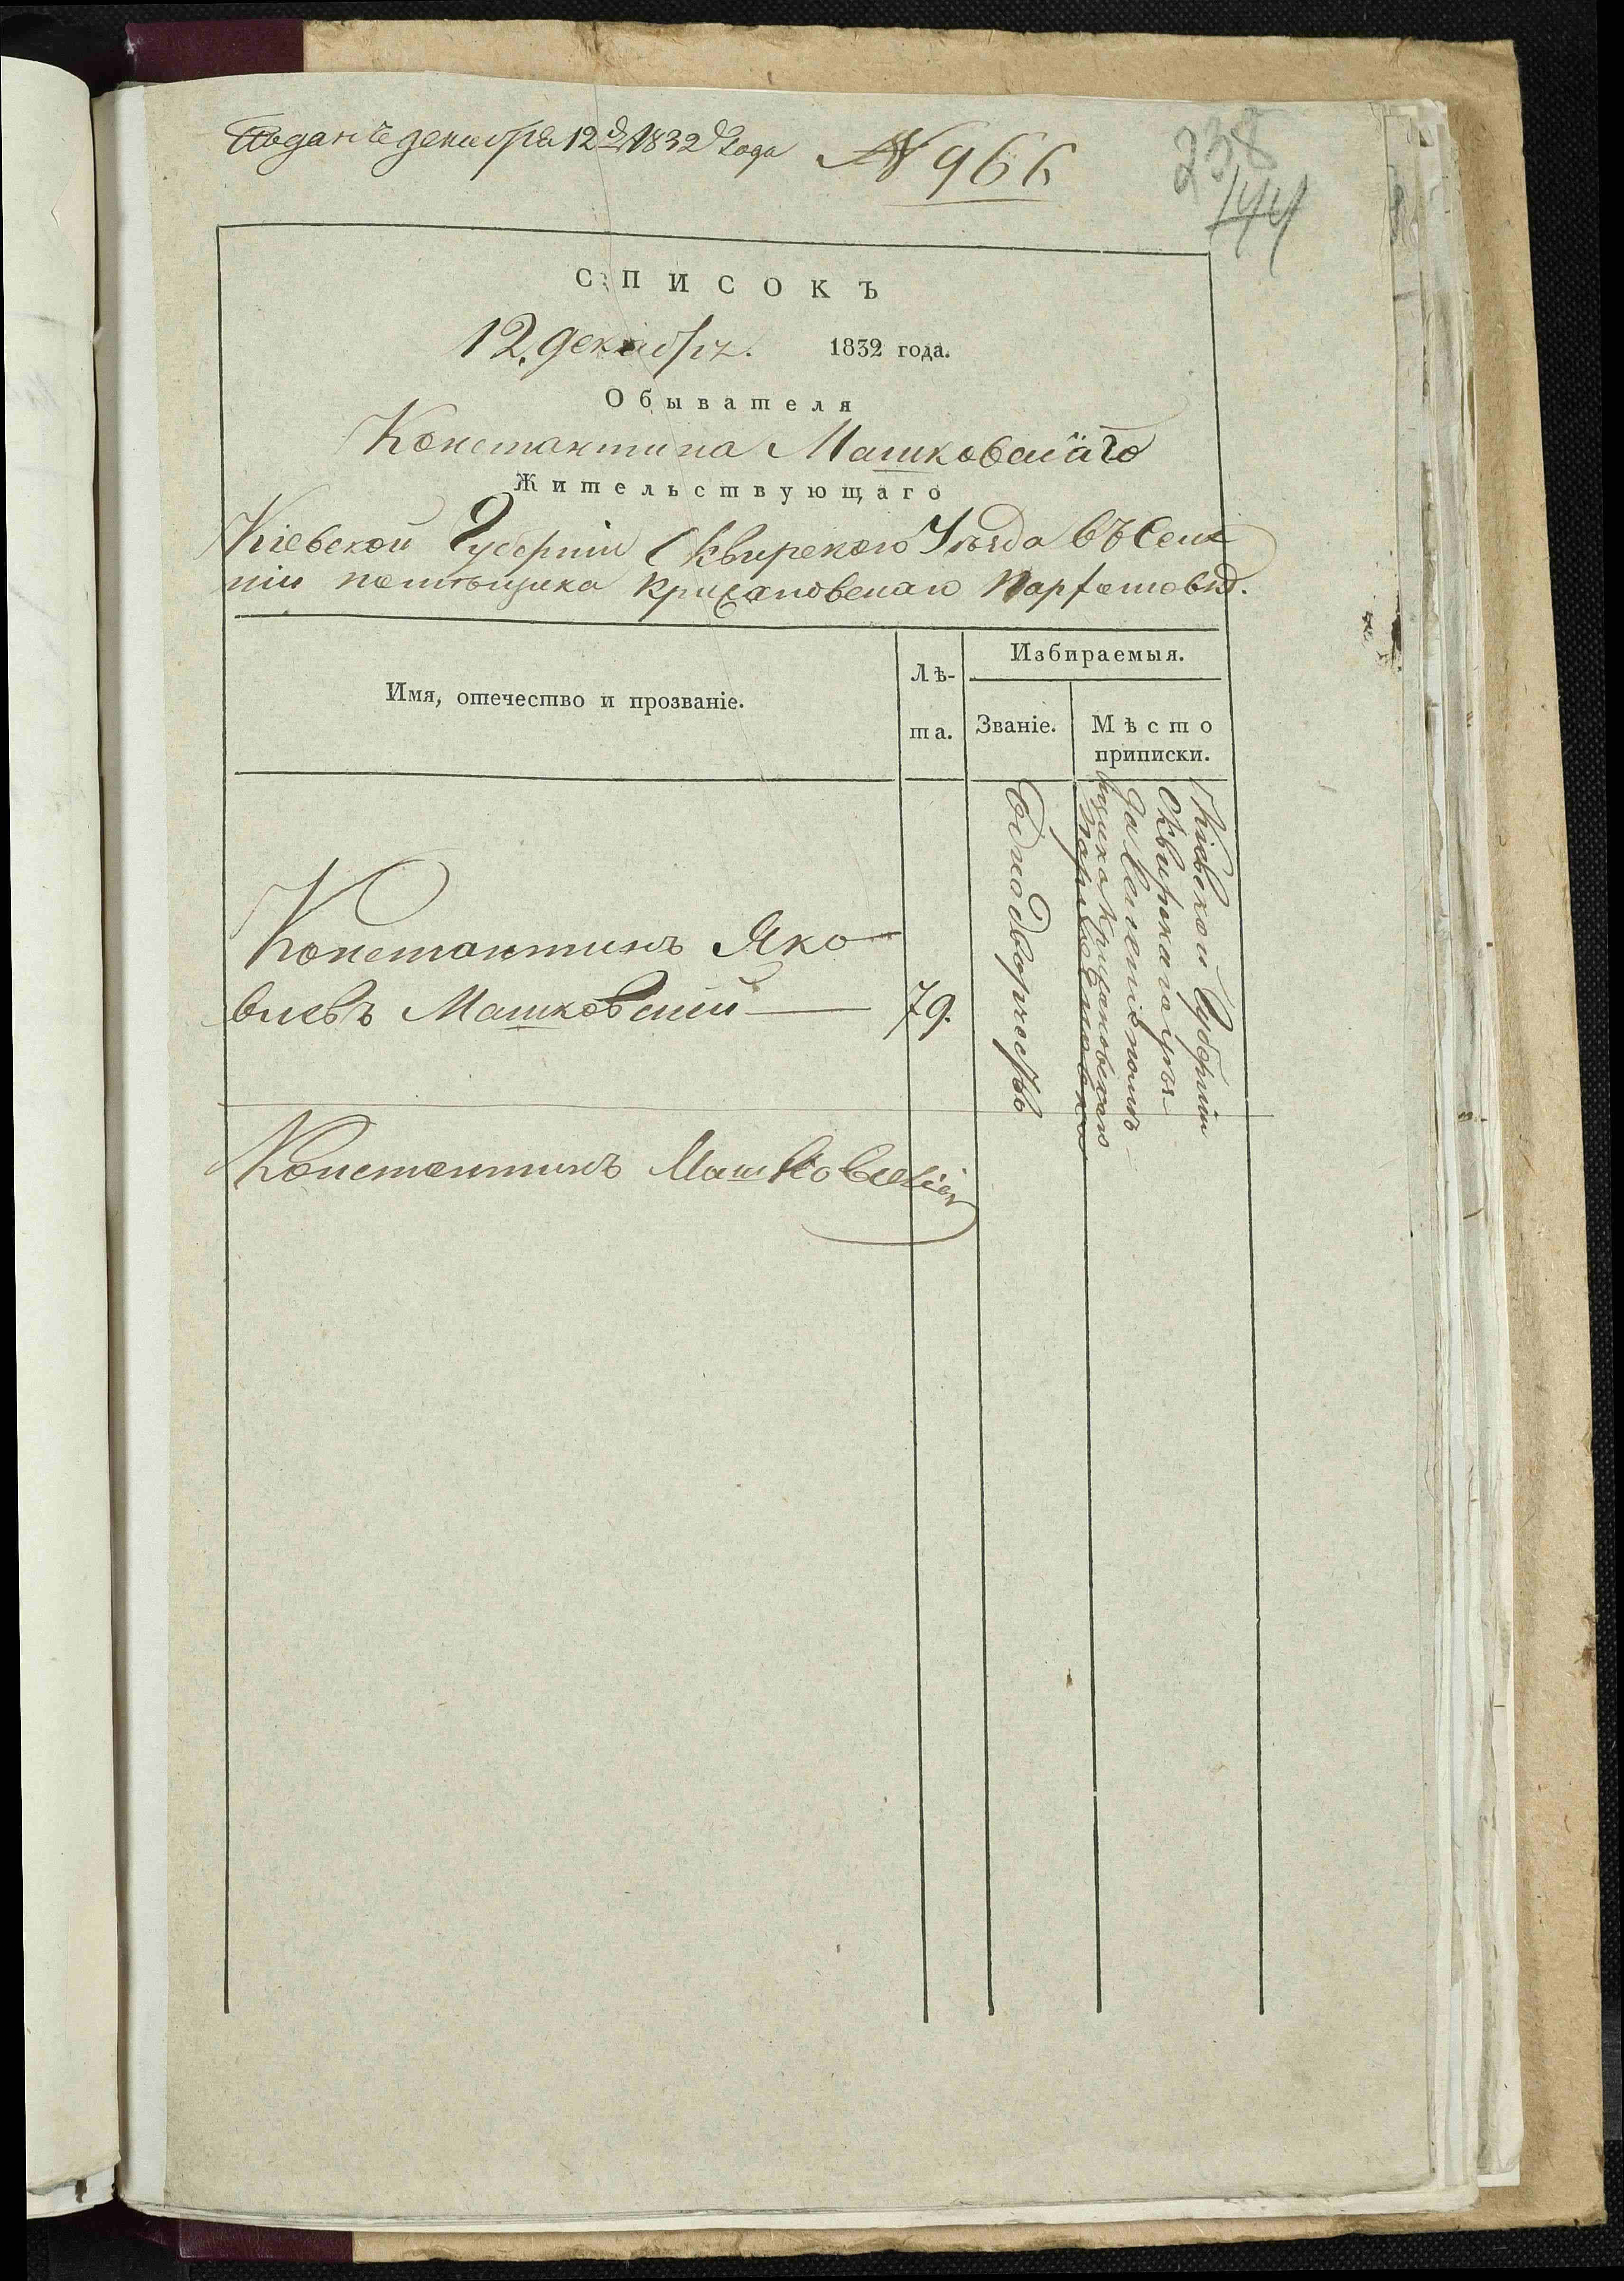 Поданъ декабря 12 д 1832 года № 966
238
144
СПИСОКЪ
12. декабря. 1832 года.
Обывателя
Константина Машковскаго
Жительствующаго
Кіевской Губерніи Сквирского Уезда въ Селе
ніи помъщика Крижановскаго
Имя, отечество и прозваніе.
Лѣ-
та.
Избираемыя.
Званіе.
Мѣсто
приписки.
Константинъ Яко
влевъ Машковский 79.
Однодворчество
Кіевской Губерніи
Сквирскаго уѣз
да Селеніе помѣ
щика Крижановскаго
Константинъ Машковскій